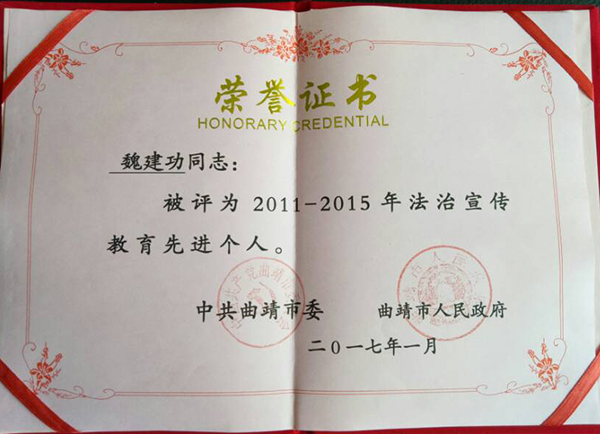 荣誉证书
HONORARY CREDENTIAL
魏建功同志：
被评为2011-2015年法治宣传
教育先进个人。
中共曲靖市委 曲靖市人民政府
二0一七年一月